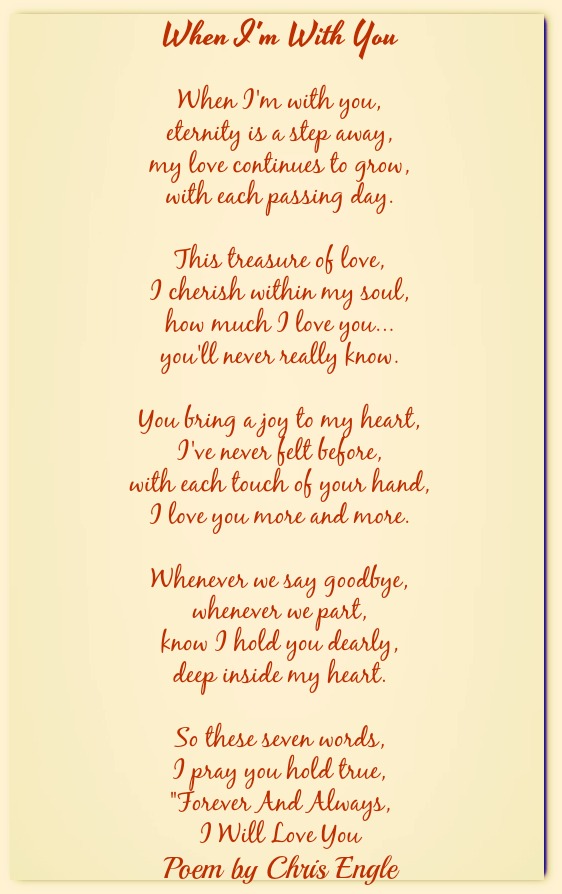 When I'm With You
When I'm with you,
eternity is a step away,
my love continues to grow,
with each passing day.
This treasure of love,
I cherish within my soul,
how much I love you...
you'll never really know.
You bring a joy to my heart,
I've never felt before,
with each touch of your hand,
I love you more and more.
Whenever we say goodbye,
whenever we part,
know I hold you dearly,
deep inside my heart.
So these seven words,
I pray you hold true,
"Forever And Always,
I Will Love You
Poem by Chris Engle